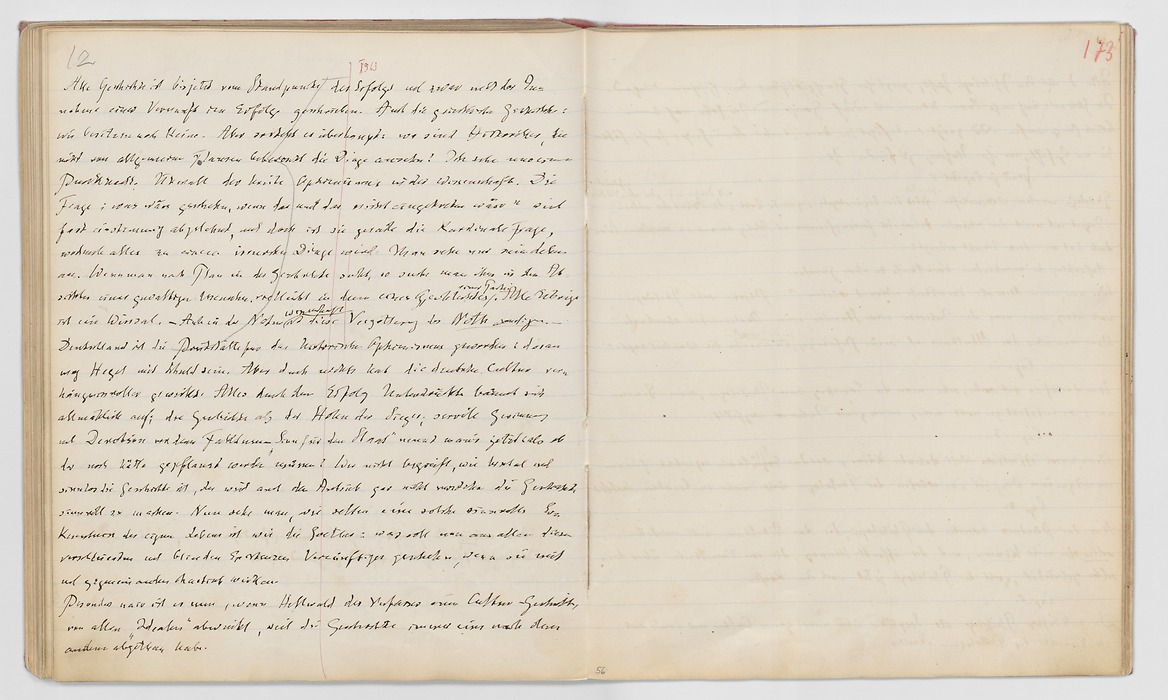 12
1963
173
Alle Geschichte ist bis jetzt vom Standpunkt des Erfolgs und zwar mit der An-
nahme einer Vernunft im Erfolge geschrieben. Auch die griechische Geschichte:
wir besitzen noch keine. Aber so steht es überhaupt: wo sind Historiker, die
nicht von allgemeinen Flausen beherrscht die Dinge ansehn? Ich sehe nur einen —
Burckhardt. Überall der breite Optimismus in der Wissenschaft. Die
Frage: „was wäre geschehen, wenn das und das nicht eingetreten wäre" wird
fast einstimmig abgelehnt, und doch ist sie gerade die Kardinale Frage,
wodurch alles zu einem ironischen Dinge wird. Man sehe nur sein Leben
an. Wenn man nach Plan in der Geschichte sucht, so suche man ihn in den Ab-
sichten eines gewaltigen Menschen, vielleicht in denen eines Geschlechtes, einer Partei. Alles Uebrige
ist ein Wirrsal. — Auch in der Naturwissenschaft ist diese Vergötterung des Nothwendigen. —
Deutschland ist die Brutstätte für den historischen Optimismus geworden: daran
mag Hegel mit Schuld sein. Aber durch nichts hat die deutsche Cultur ver-
hängnissvoller gewirkt. Alles durch den Erfolg Unterdrückte bäumt sich
allmählich auf; die Geschichte als der Hohn der Sieger; servile Gesinnung
und Devotion vor dem Faktum — „Sinn für den Staat" nennt man's jetzt: als ob
der noch hätte gepflanzt werden müssen! Wer nicht begreift, wie brutal und
sinnlos die Geschichte ist, der wird auch den Antrieb gar nicht verstehn die Geschichte
sinnvoll zu machen. Nun sehe man, wie selten eine solche sinnvolle Er-
kenntniss des eignen Lebens ist wie die Goethes: was soll nun aus allen diesen
verschleierten und blinden Existenzen Vernünftiges geschehen, wenn sie mit
und gegeneinander chaotisch wirken.
Besonders naiv ist es nun, wenn Hellwald der Verfasser einer Cultur-Geschichte,
von allen „Idealen" abwinkt, weil die Geschichte immer eines nach dem
andern abgethan habe.
56